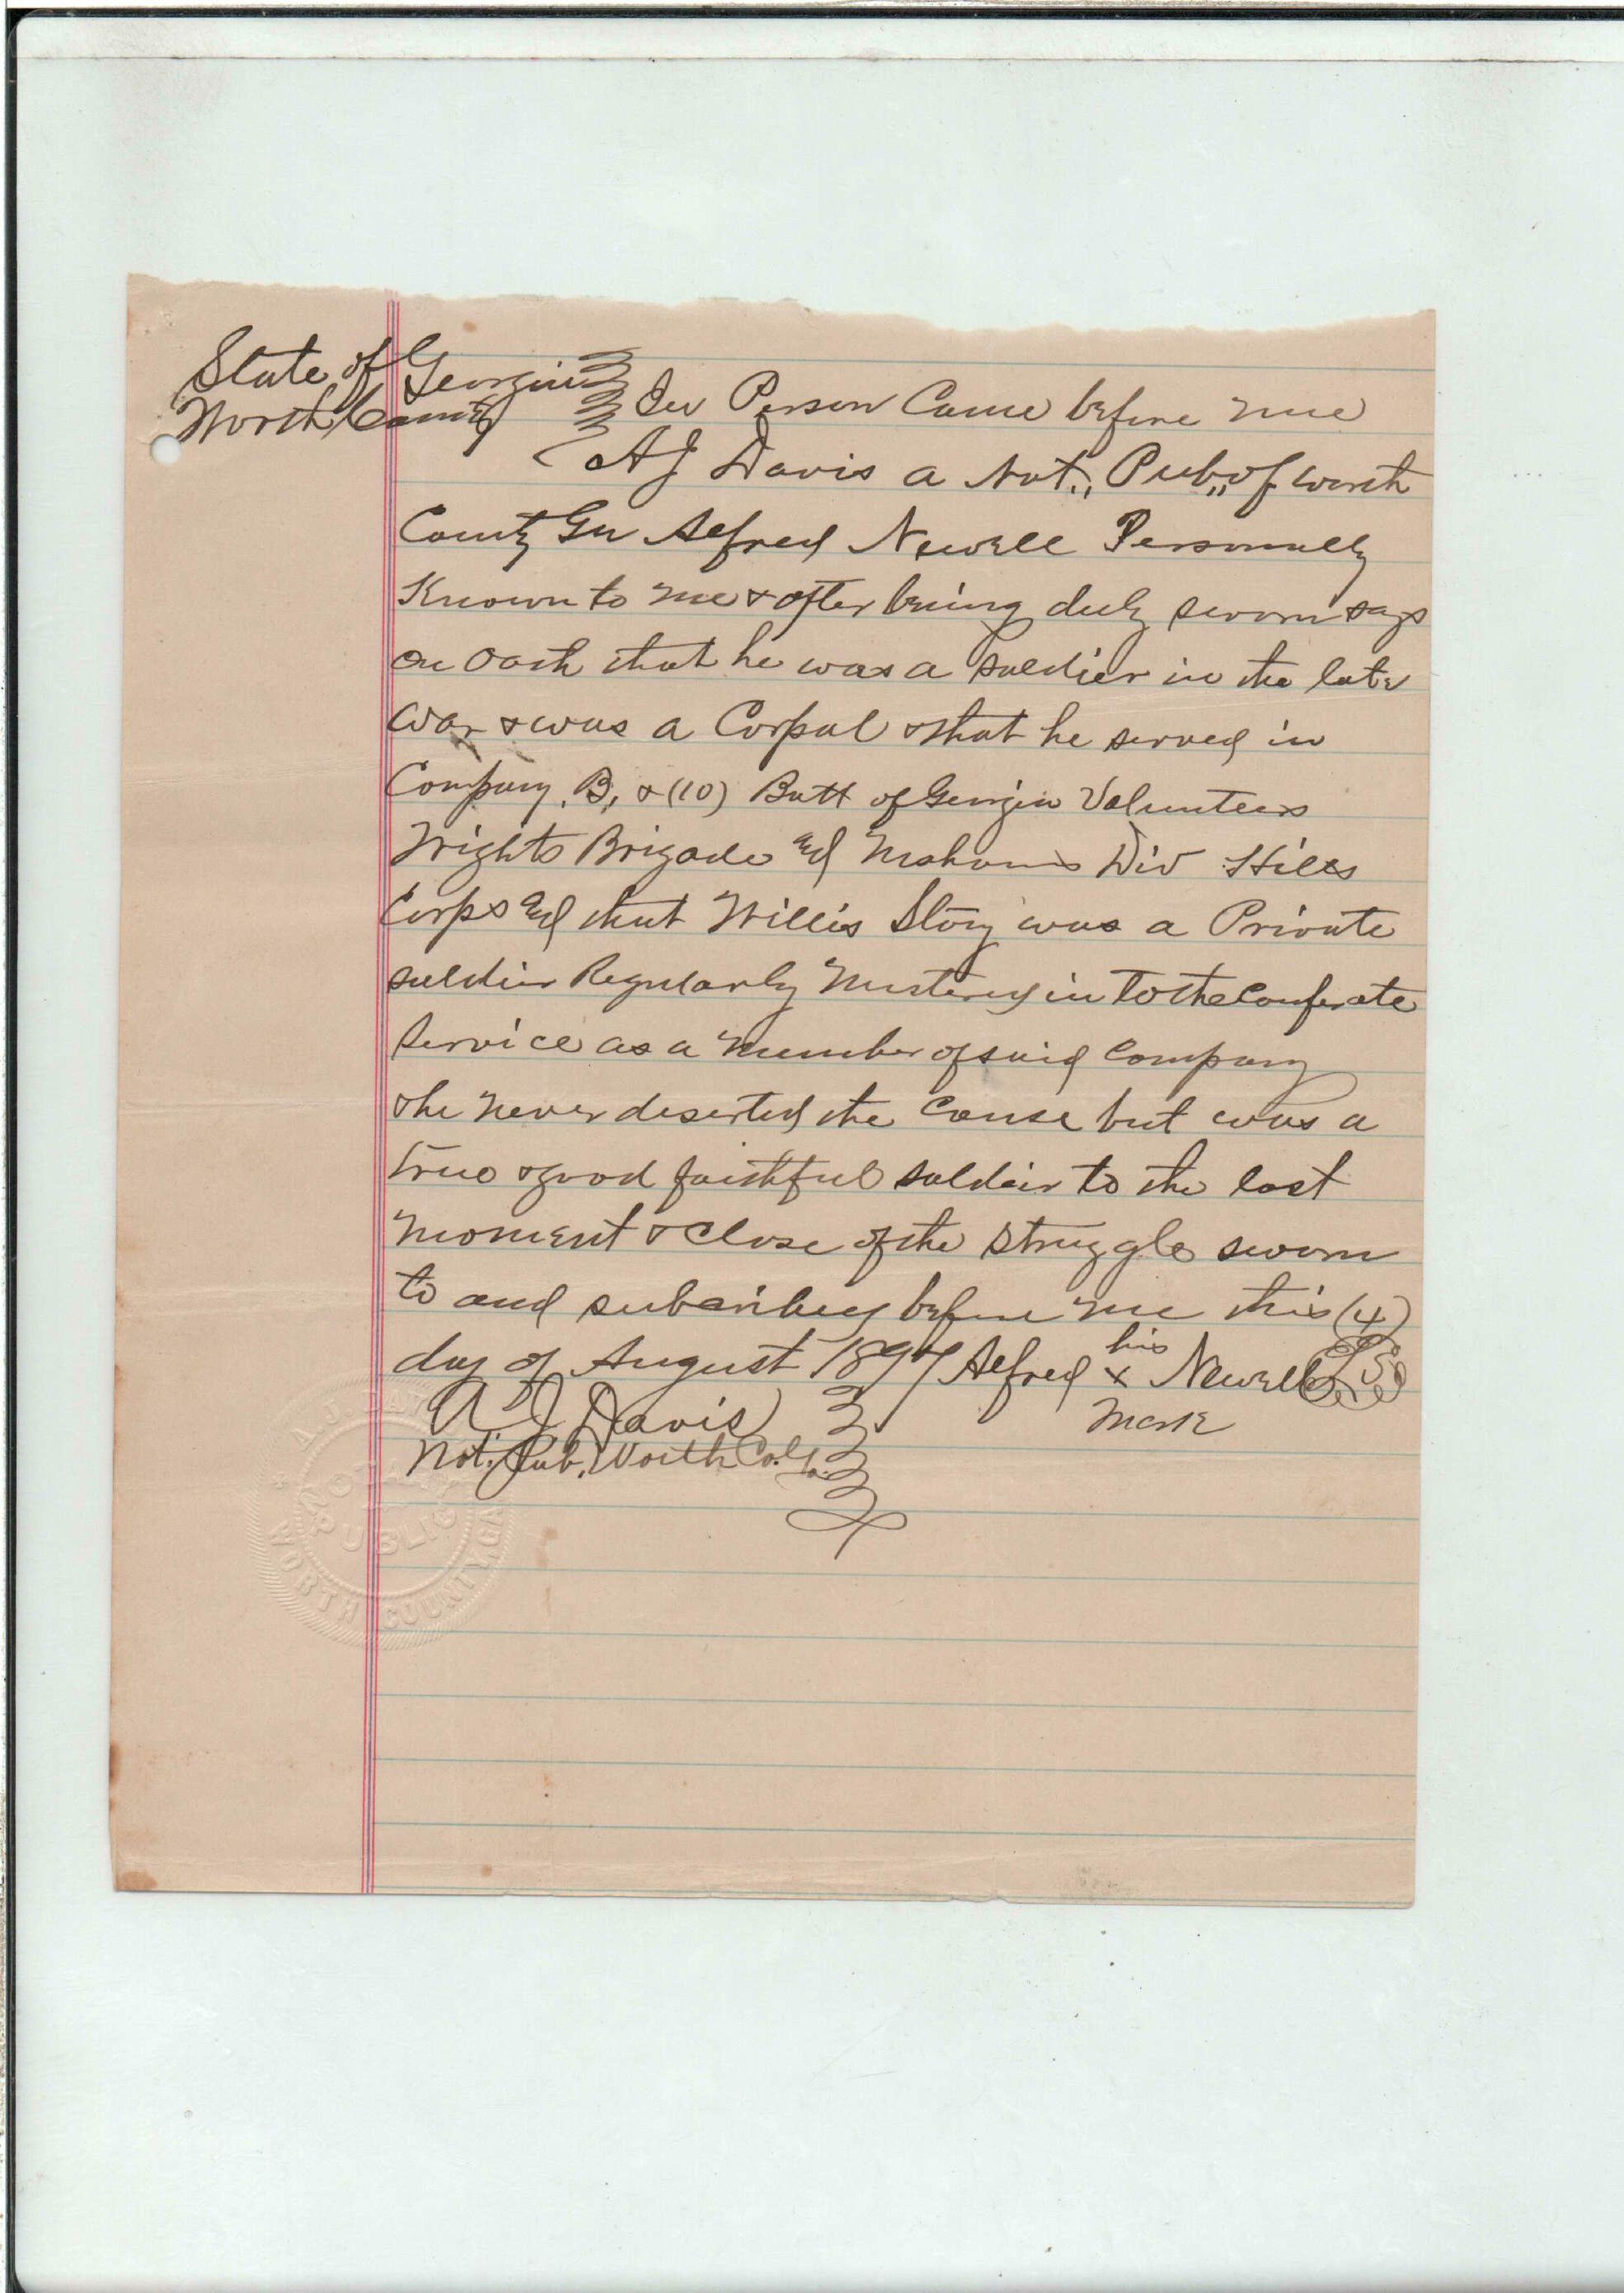 State of Georgia
Worth County
In Person Came before me
A J Davis a Not,, Pub,, of worth
County Ga Alfred Newell Personally
Known to me & after being duly sworn says
on Oath that he was a soldier in the late
war & was a Corpal & that he served in
Company B, & (10) Batt of Georgia Volunteers
Wrights Brigade and Mahons Div Hills
Corps and that Willis Story was a Private
soldier Regularly Mustered in to the Conferate
service as a member of said Company
& he never deserted the Cause but was a
true & good faithful soldier to the last
moment & close of the struggle sworn
to and subscribed before me this (4)
day of August 1897 Alfred his x mark Newell L.S.
A J Davis
Not. Pub. Worth Co. Ga.
A. J. DAVIS
NOTARY
PUBLIC
WORTH COUNTY, GA